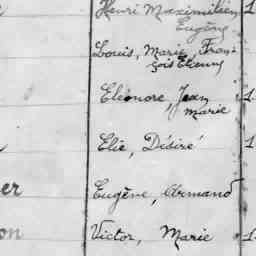 Henri Maximilien
Eugène
Louis, Marie, Fran-
çois Etienne
Eléonore, Jean
Marie
Elie, Désiré
er
Eugène, Armand
on
Victor, Marie